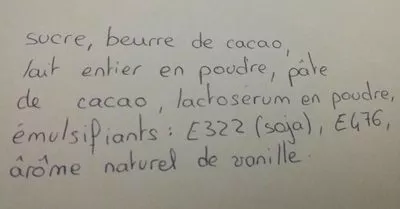 sucre, beurre de cacao,
lait entier en poudre, pâte
de cacao, lactosérum en poudre,
émulsifiants : E322 (soja), E476,
ârôme naturel de vanille.